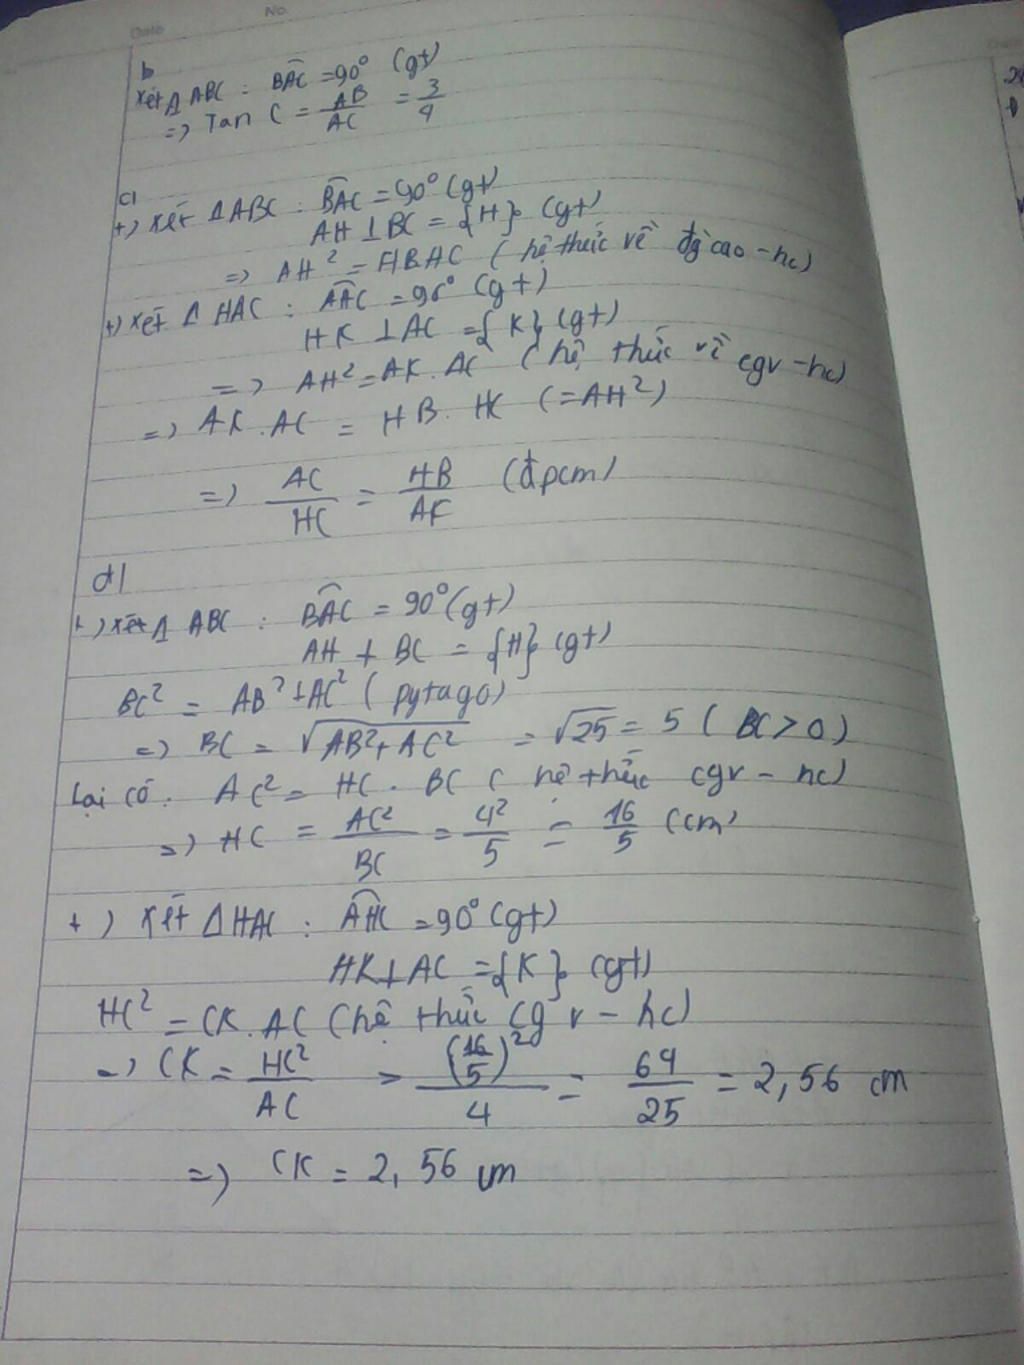 Date No.
b
Xét Δ ABC : BAC = 90° (gt)
=> Tan C = AB/AC = 3/4
c1
+) Xét ΔABC : BAC = 90° (gt)
AH ⊥ BC = {H} (gt)
=> AH² = HB HC (hệ thức về đg cao - hc)
+) Xét Δ HAC : AAC = 90° (gt)
HK ⊥ AC = {K} (gt)
=> AH² = AK. AC (hệ thức về cgv - hc)
=> AK . AC = HB . HC (= AH²)
=> AC/HC = HB/AK (đpcm)
d1
+) Xét Δ ABC : BAC = 90° (gt)
AH ⊥ BC = {H} (gt)
BC² = AB² + AC² (pytago)
=> BC = √AB² + AC² = √25 = 5 (BC > 0)
Lại có : AC² = HC . BC (hệ thức cgv - hc)
=> HC = AC²/BC = 4²/5 = 16/5 (cm)
+) Xét Δ HAC : AHC = 90° (gt)
HK ⊥ AC = {K} (gt)
HC² = CK . AC (hệ thức cgv - hc)
=> CK = HC²/AC = (16/5)²/4 = 64/25 = 2,56 cm
=> CK = 2,56 cm